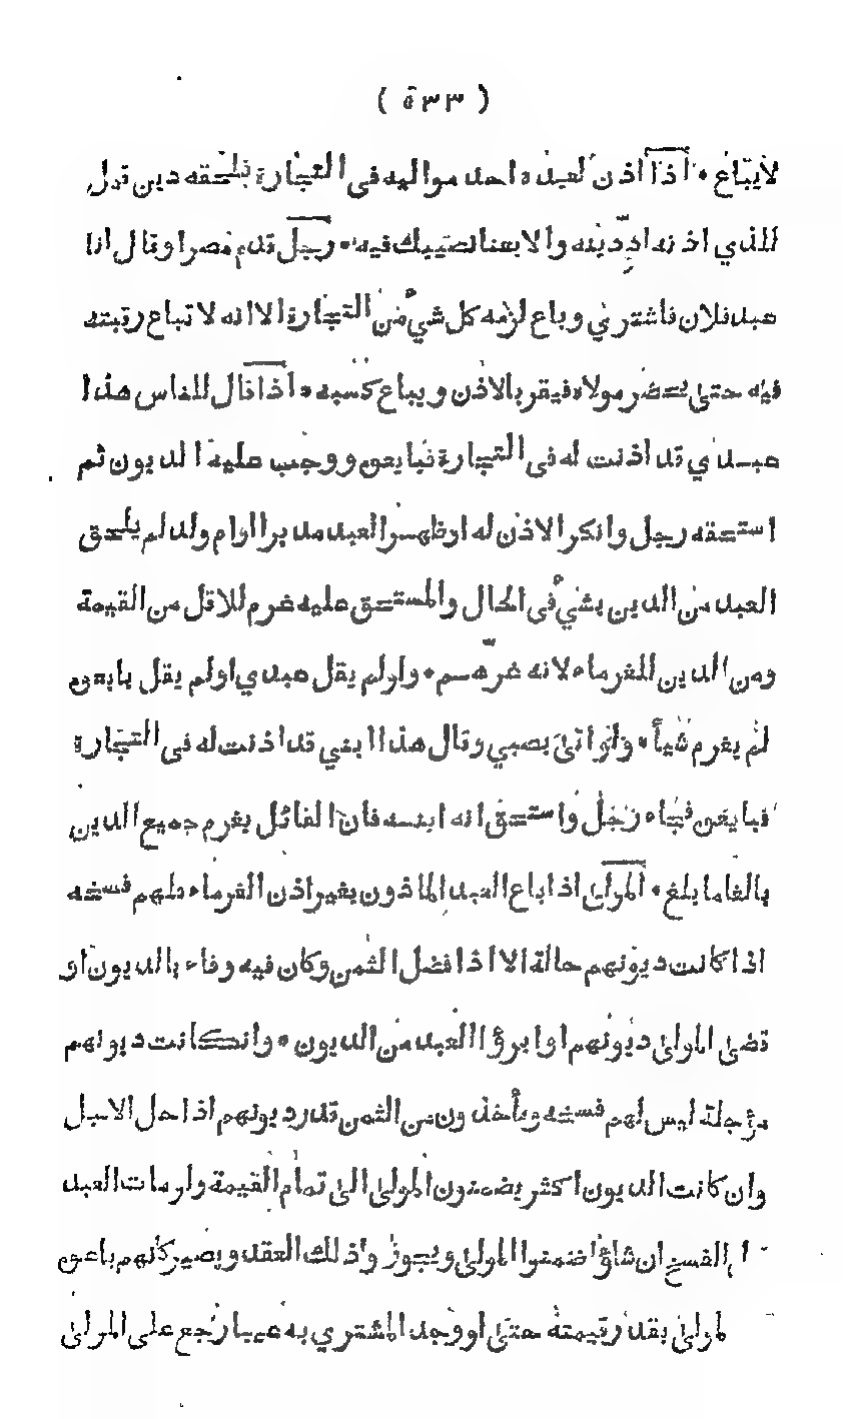 ( ٥٣٣ )
لايباع • اذا اذن لعبد احد مواليه فى التجارة فلحقه دين قيل
للذي اذنه ادّ دينه والا بعنا نصيبك فيه • رجل قدم مصرا وقال انا
عبد فلان فاشترى وباع لزمه كل شئ من التجارة الا انه لا تباع رقبته
فيه حتى يحضر مولاه فيقر بالاذن ويباع كسبه • اذا قال للناس هذا
عبدي قد اذنت له فى التجارة فبايعوه ووجب عليه الديون ثم
استحقه رجل وانكر الاذن له اوظهر العبد مدبرا اوام ولد لم يلحق
العبد من الدين بشئ فى الحال والمستحق عليه غرم للاقل من القيمة
ومن الدين للغرماء لانه غرّهم • ولو لم يقل عبدي اولم يقل بايعوه
لم يغرم شيأ • ولو اتى بصبي وقال هذا ابني قد اذنت له فى التجارة
فبايعوه فجاء رجل واستحق انه ابنه فان القائل يغرم جميع الدين
بالغا ما بلغ • المولى اذا باع العبد الماذون بغير اذن الغرماء فلهم فسخه
اذا كانت ديونهم حالة الا اذا فضل الثمن وكان فيه وفاء بالديون او
قضى المولى ديونهم او ابرؤا العبد من الديون • وان كانت ديونهم
مؤجلة ليس لهم فسخه ويأخذون من الثمن قدر ديونهم اذا حل الاجل
وان كانت الديون اكثر يضمنون المولى الى تمام القيمة ولو مات العبد
الفسخ ان شاؤا ضمنوا المولى ويجوز ذلك العقد ويصير كانهم باعوه
المولى بقدر قيمته حتى لو وجد المشتري به عيبا رجع على المولى